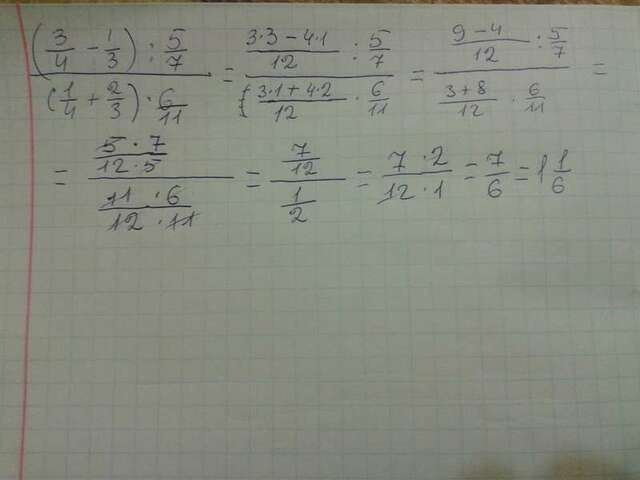 (3/4 - 1/3) : 5/7 / (1/4 + 2/3) · 6/11 = (3·3 - 4·1)/12 : 5/7 / (3·1 + 4·2)/12 · 6/11 = (9 - 4)/12 : 5/7 / (3 + 8)/12 · 6/11 =
= (5 · 7)/(12 · 5) / (11 · 6)/(12 · 11) = 7/12 / 1/2 = (7 · 2)/(12 · 1) = 7/6 = 1 1/6